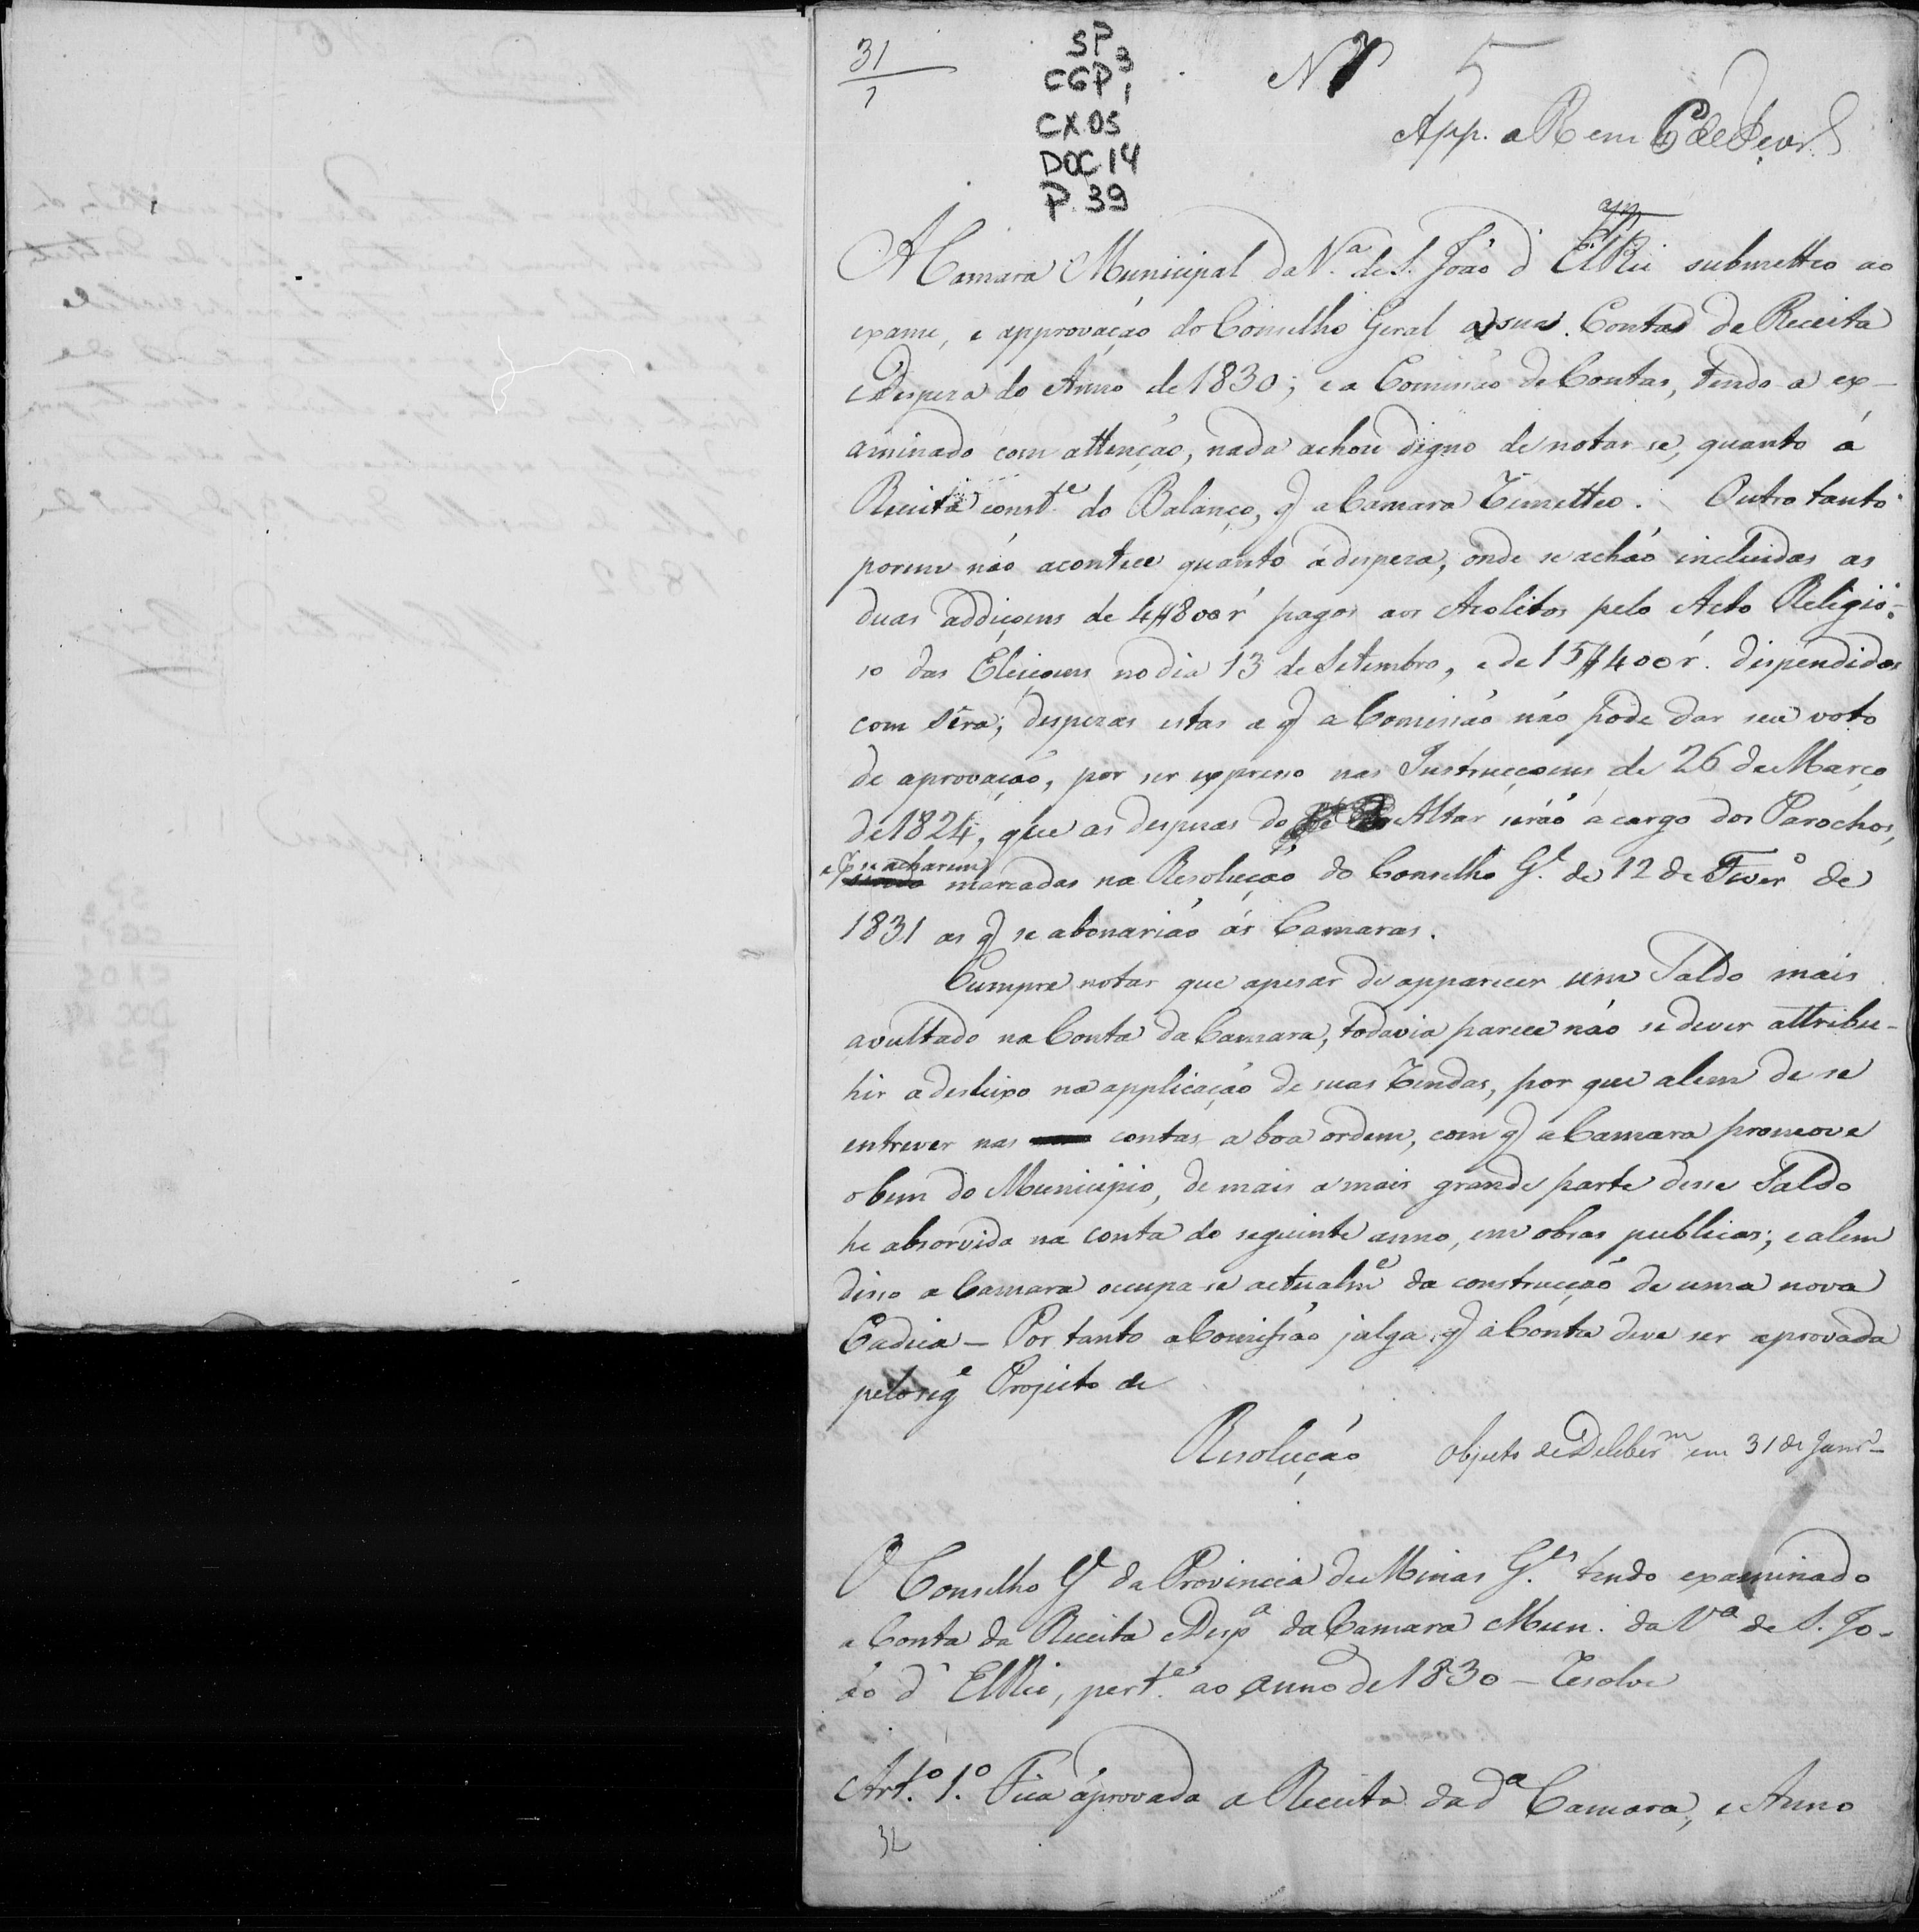 31
1
SP
CGP 3
1
CX.05
DOC 14
P. 39
Nº 5
App. a R em 6 de Fevr.
A Camara Municipal da V.ª de S. João d' ElRei submetteo ao
exame, e approvação do Conselho Geral a sua Conta de Receita
e Despeza do Anno de 1830; e a Comissão de Contas, tendo a ex-
aminado com attenção, nada achou digno de notar-se, quanto á
Receita const.e do Balanço, q a Camara remetteo. Outro tanto
porem não acontece quanto á despeza, onde se achão incluidas as
duas addiçoens de 4$800 r pagos aos Acolitos pelo Acto Religio-
so das Eleiçoens no dia 13 de Setembro, e de 15$400 r. dispendidos
com sêra; despezas estas a q a Comissão não pode dar seu voto
de aprovação, por ser expresso nas Instrucçoens de 26 de Março
de 1824, que as despezas do Altar serão a cargo dos Parochos,
e q se acharem
marcadas na Resolução do Conselho G.l de 12 de Fever.º de
1831 as q se abonarião ás Camaras.
Cumpre notar que apesar de apparecer um Saldo mais
avultado na Conta da Camara, todavia parece não se dever attribu-
hir a desleixo na applicação de suas rendas, por que alem de se
entrever nas contas a boa ordem, com q a Camara promove
o bem do Municipio, de mais a mais grande parte desse Saldo
he absorvida na conta do seguinte anno, em obras publicas; e alem
disso a Camara occupa-se actualm.e da construcção de uma nova
Cadeia – Por tanto a Comissão julga q a Conta deve ser aprovada
pelo seg.e Projecto de
Resolução Objecto de Deliber.m em 31 de Janr.º
O Conselho G.l da Provincia de Minas G.es tendo examinado
a Conta da Receita e Desp.ª da Camara Mun. da V.ª de S. Jo-
ão d' ElRei, pert.e ao anno de 1830 – resolve
Art.º 1.º Fica aprovada a Receita da d.ª Camara, e Anno
32